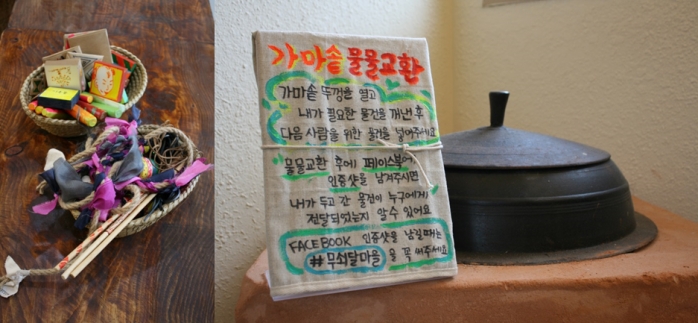 가마솥 물물교환
가마솥 뚜껑을 열고
내가 필요한 물건을 꺼낸 후
다음 사람을 위한 물건을 넣어주세요
물물교환 후에 페이스북에
인증샷을 남겨주시면
내가 두고 간 물건이 누구에게
전달되었는지 알 수 있어요
FACEBOOK 인증샷을 남길때는
#무쇠달마을 을 꼭 써주세요